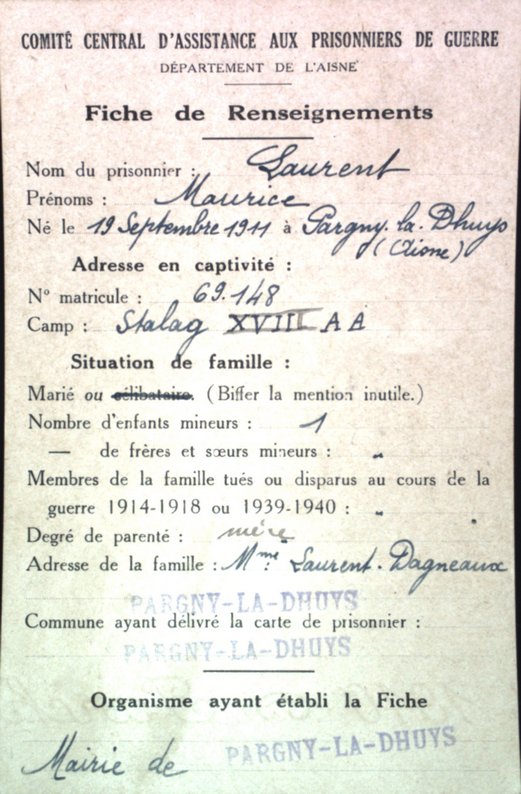 COMITÉ CENTRAL D'ASSISTANCE AUX PRISONNIERS DE GUERRE
DÉPARTEMENT DE L'AISNE
Fiche de Renseignements
Nom du prisonnier : Laurent
Prénoms : Maurice
Né le 19 Septembre 1911 à Pargny-la-Dhuys
(Aisne)
Adresse en captivité :
N° matricule : 69.148
Camp : Stalag XVIII A A
Situation de famille :
Marié ou célibataire. (Biffer la mention inutile.)
Nombre d'enfants mineurs : 1
— de frères et sœurs mineurs : "
Membres de la famille tués ou disparus au cours de la
guerre 1914-1918 ou 1939-1940 : " "
Degré de parenté : mère
Adresse de la famille : Mme Laurent-Dagneaux
PARGNY-LA-DHUYS
Commune ayant délivré la carte de prisonnier :
PARGNY-LA-DHUYS
Organisme ayant établi la Fiche
Mairie de PARGNY-LA-DHUYS